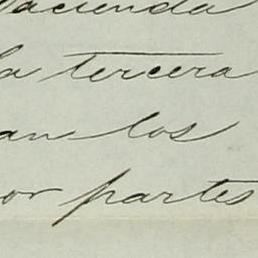 Hacienda
la tercera
an los
or partes